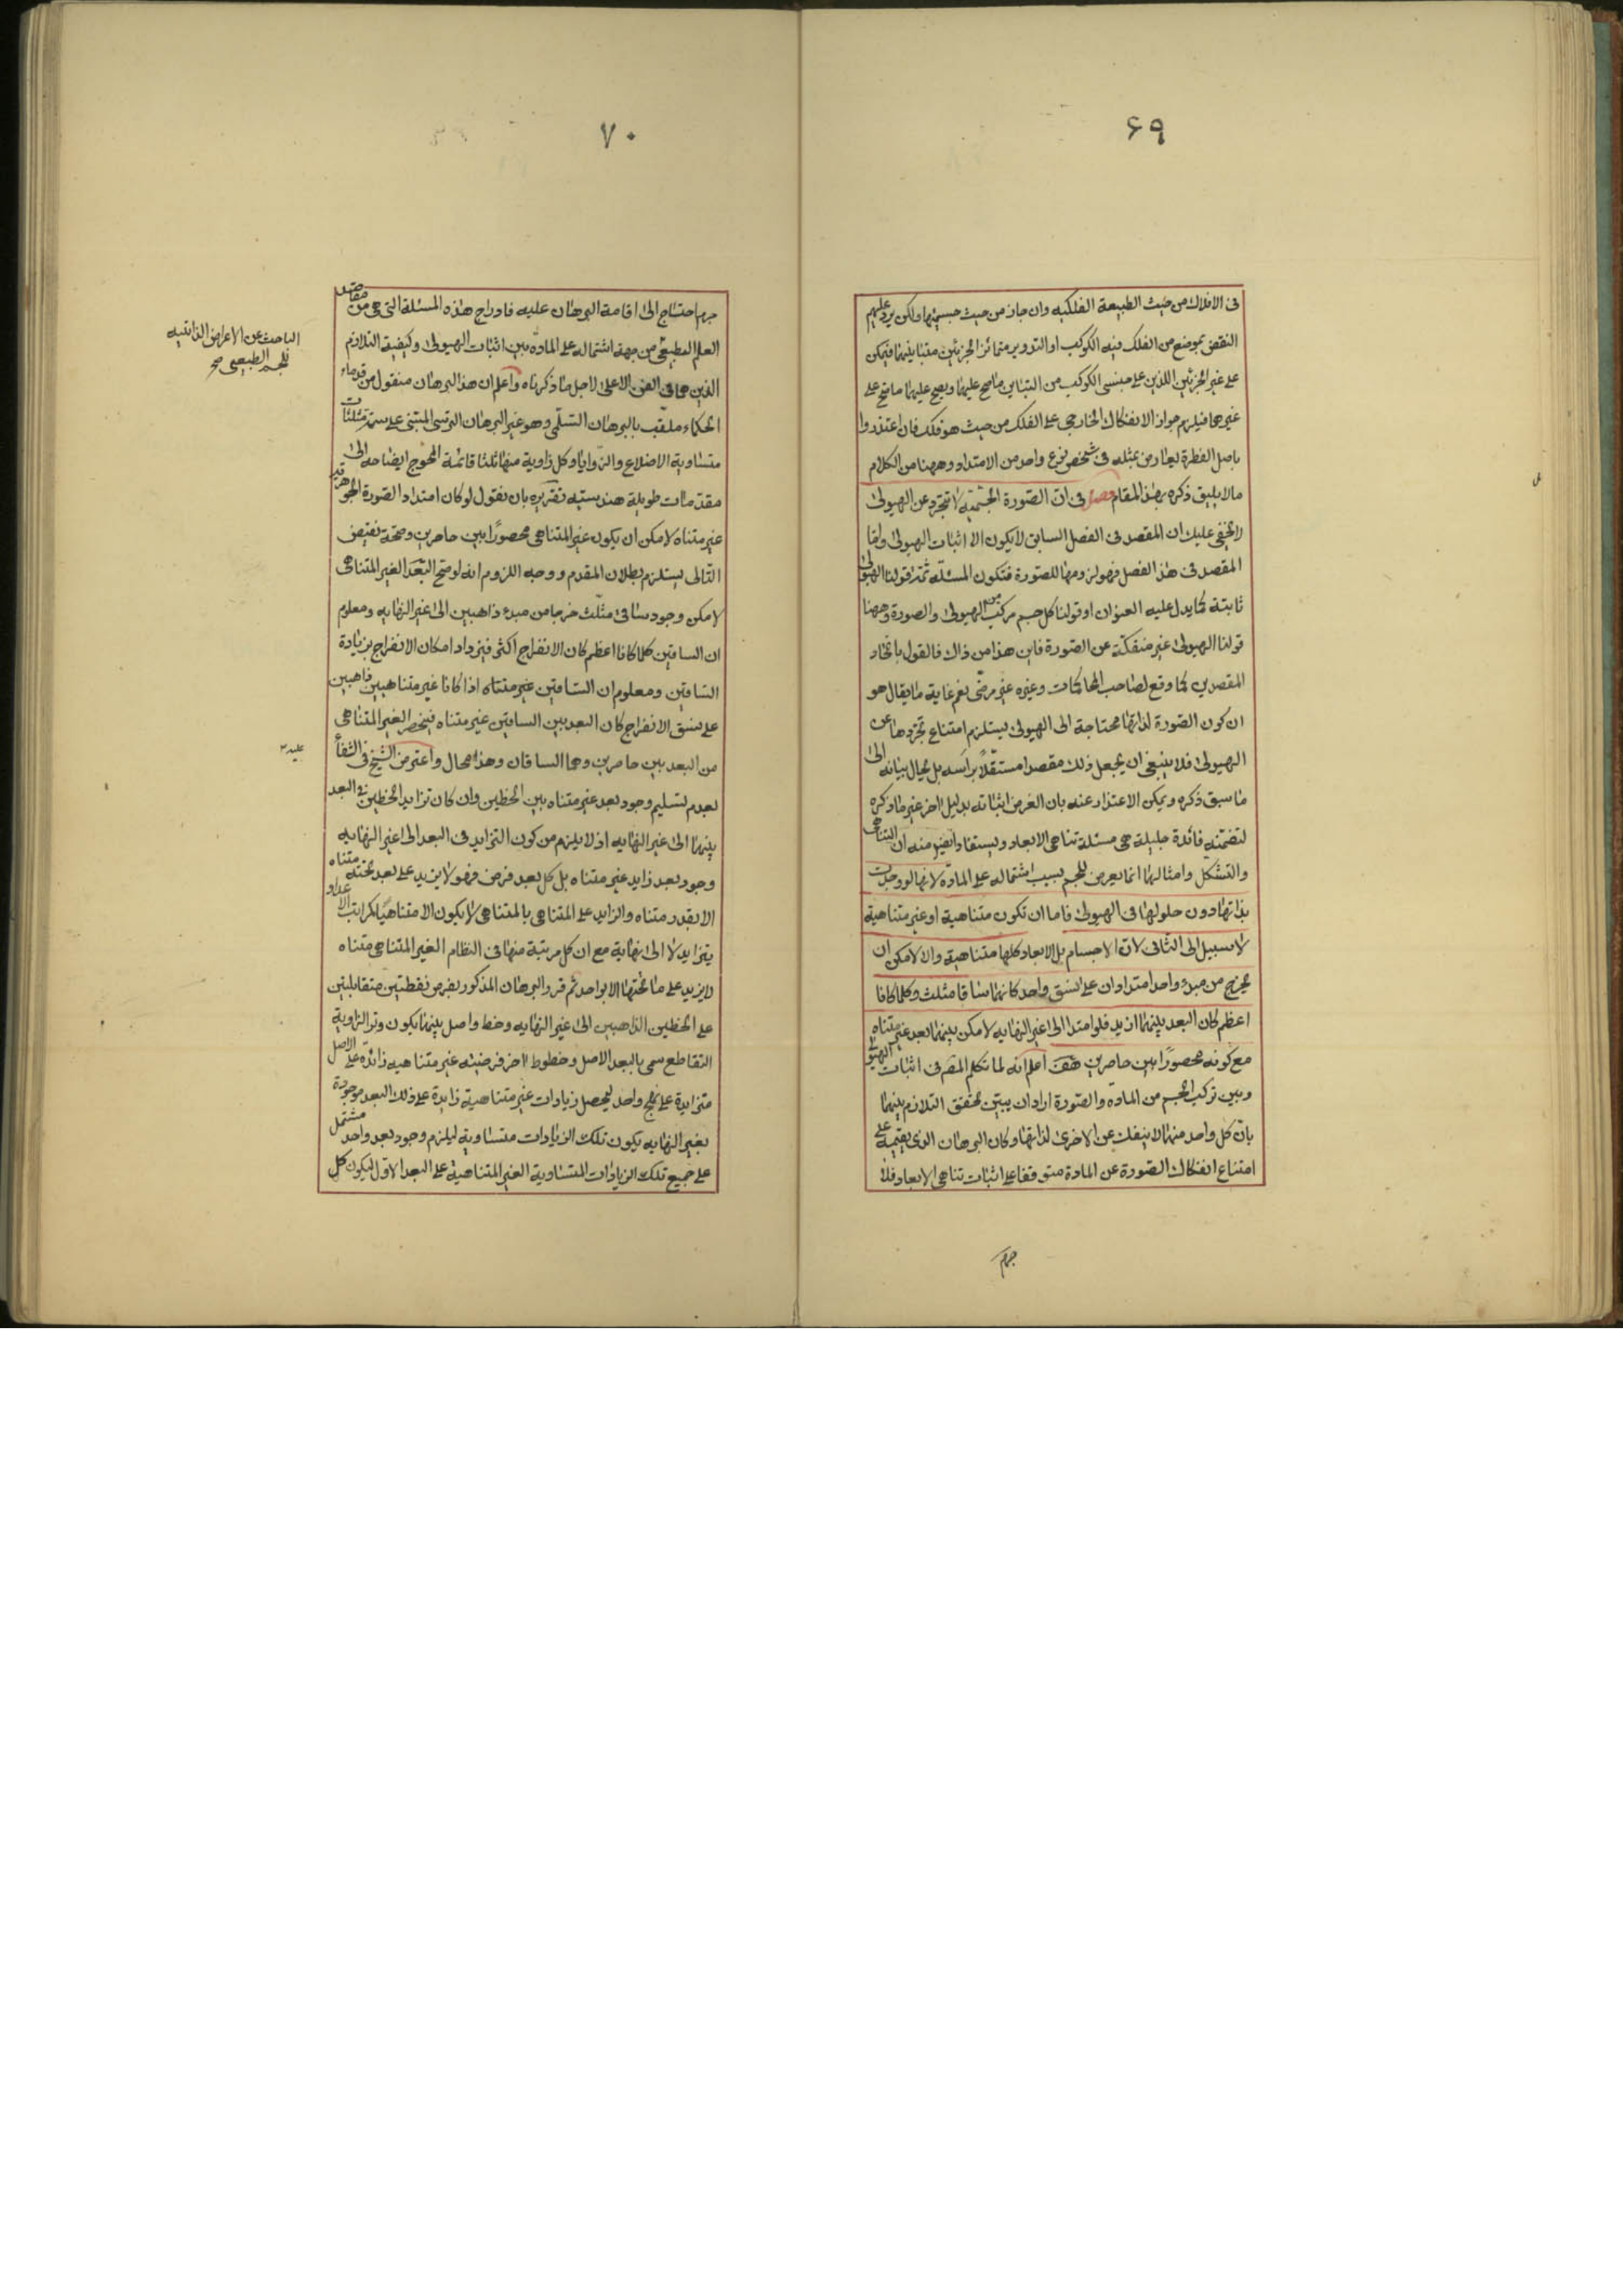 ۶۹
فى الافلاك من حيث الطبيعة الفلكيه وان جاز من حيث جسميتها ولكن يرد عليهم
النقض بموضع من الفلك فيه الكوكب او التدوير متمائز الجزئين متباينهما فيمكن
على غير الجزئين اللذين على جنبتى الكوكب من التباين ما صح عليهما ويصح عليهما ما صح على
غيرهما فيلزم جواز الانفكاك الخارجى على الفلك من حيث هو فلك فان اعتذروا
باصل الفطرة يعارض بمثله فى شخص نوع واحد من الامتداد وههنا من الكلام
ما لا يليق ذكره بهذا المقام فصل فى ان الصّورة الجسميّه لا تتجرّد عن الهيولى
لا يخفى عليك ان المقصد فى الفصل السابق لا يكون الا اثبات الهيولى وامّا
المقصد فى هذا الفصل فهو لزومها للصورة فتكون المسئلة ثمّة قولنا الهيولى
ثابتة كما يدل عليه العنوان او قولنا كل جسم مركب من الهيولى والصورة وههنا
قولنا الهيولى غير منفكّة عن الصّورة فاين هذا من ذاك فالقول باتحاد
المقصدين كما وقع لصاحب المحاكمات وغيره غير مرضى نعم غاية ما يقال هو
ان كون الصّورة لذاتها محتاجة الى الهيولى يستلزم امتناع تجرّدها عن
الهيولى فلا ينبغى ان يجعل ذلك مقصدا مستقلاً براسه بل يحال بيانه الى
ما سبق ذكره ويمكن الاعتذار عنه بان الغرض اثباته بدليل اخر غير ما ذكره
لتضمّنه فائدة جليلة هى مسئلة تناهى الابعاد ويستفاد ايضا منه ان التناهى
والتشكّل وامثالهما انما يعرض للجسم بسبب اشتماله على المادّة لانها لو وجدت
بذاتها دون حلولها فى الهيولى فاما ان تكون متناهية او غير متناهية
لا سبيل الى الثانى لان الاجسام بل الابعاد كلها متناهية والا لامكن ان
يخرج من مبدء واحد امتدادان على نسق واحد كانهما ساقا مثلث وكلما كانا
اعظم كان البعد بينهما ازيد فلو امتدا الى غير النهايه لامكن بينهما بعد غير متناه
مع كونه محصورًا بين حاصرين هف اعلم انه لما تكلم المص فى اثبات الهيولى
وبين تركب الجسم من المادّة والصّورة اراد ان يبيّن تحقق التلازم بينهما
بان كل واحد منهما لا ينفك عن الاخرى لذاتها وكان البرهان الذى يقيمه على
امتناع انفكاك الصّورة عن المادة متوقفا على اثبات تناهى الابعاد فلا
جرم
۷۰
جرم احتاج الى اقامة البرهان عليه فادراج هذه المسئلة التى هى من مقاصد
العلم الطبيعى من جهة اشتماله على المادة بين اثبات الهيولى وكيفية التلازم
الباحث عن الاعراض الذاتيه
للجسم الطبيعى صح
الذين هما فى الفن الاعلى لاجل ما ذكرناه واعلم ان هذا البرهان منقول من قدماء
الحكماء ملقب بالبرهان السّلّمى وهو غير البرهان الترسى المبتنى على ستة مثلثات
متساوية الاضلاع والزوايا وكل زاوية منها ثلثا قائمة المحوج ايضاحه الى
مقدمات طويلة هندسيّه تقريره بان نقول لو كان امتداد الصّورة الجوهرية
غير متناه لامكن ان يكون غير المتناهى محصورًا بين حاصرين وصحة نقيض
التّالى يستلزم بطلان المقدم ووجه اللزوم انه لو صح البُعد الغير المتناهى
لامكن وجود ساقى مثلّث خرجا من مبدء ذاهبين الى غير النهايه ومعلوم
ان الساقين كلما كانا اعظم كان الانفراج اكثر فيزداد امكان الانفراج بزيادة
السّاقين ومعلوم ان السّاقين غير متناه اذا كانا غير متناهيين ذاهبين
على نسق الانفراج كان البعد بين الساقين غير متناه فينحصر الغير المتناهى
من البعد بين حاصرين وهما الساقان وهذا محال واعترض الشيخ فى الشفأ
عليه
بعدم تسليم وجود بعد غير متناه بين الخطين وان كان تزايد الخطين فى البعد
بينهما الى غير النهايه اذ لا يلزم من كون التزايد فى البعد الى غير النهايه
وجود بعد زايد غير متناه بل كل بعد فرض فهو لا يزيد على بعد تحته متناه
الا بقدر متناه والزايد على المتناهى بالمتناهى لا يكون الا متناهيًا كمراتب الاعداد
يتزايد لا الى نهاية مع ان كل مرتبة منها فى النظام الغير المتناهى متناه
لا يزيد على ما تحتها الا بواحد ثم قرر البرهان المذكور بفرض نقطتين متقابلتين
على الخطين الذاهبين الى غير النهايه وخط واصل بينهما يكون وتر الزاوية
التقاطع سمى بالبعد الاصل وخطوط اخر فرضيّه غير متناهيه زائدة على الاصل
متزايدة على نهج واحد ليحصل زيادات غير متناهية زايدة على ذلك البعد موجودة
بغير النهايه يكون تلك الزيادات متساوية ليلزم وجود بعد واحد مشتمل
على جميع تلك الزيادات المتساوية الغير المتناهية على البعد الاوّل ليكون كل